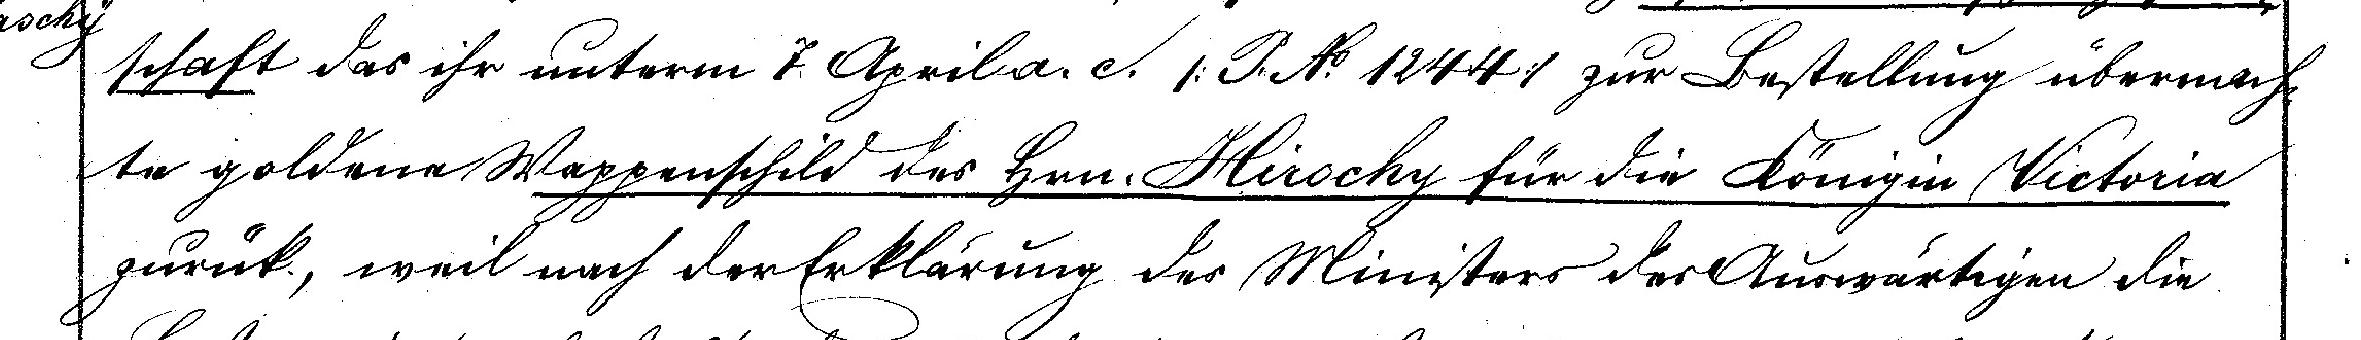 schaft das ihr unterm 7. April a. c. /: P. No 1244 :/ zur Bestellung übermach-
te goldene Wappenschild des Hrn. Hirschy für die Königin Victoria
zurük, weil nach der Erklärung des Ministers des Auswärtigen die